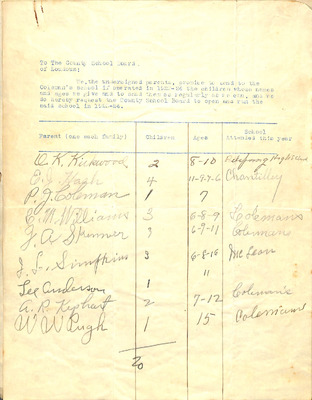 To The County School Board
of Loudoun:
We, the undersigned parents, promise to send to the
Coleman's school if operated in 1933-34 the children whose names
and ages we give and to send them as regularly as we can, and we
do hereby request the County School Board to open and run the
said school in 1933-34.
Parent (one each family) Children Ages School
Attended this year
O. K. Kirkwood 2 8-10
E. J. Hagh 4 11-9-7-6 Chantilley
P. J. Coleman 1 7
E. M. Williams 3 6-8-9 Colemans
J. A. Skinner 3 6-9-11 Colemans
J. L. Simpkins 3 6-8-15 McLean
Lee Anderson 1 11
A. R. Kephart 2 7-12 Colemans
W W Pugh 1 15 Colemans
20